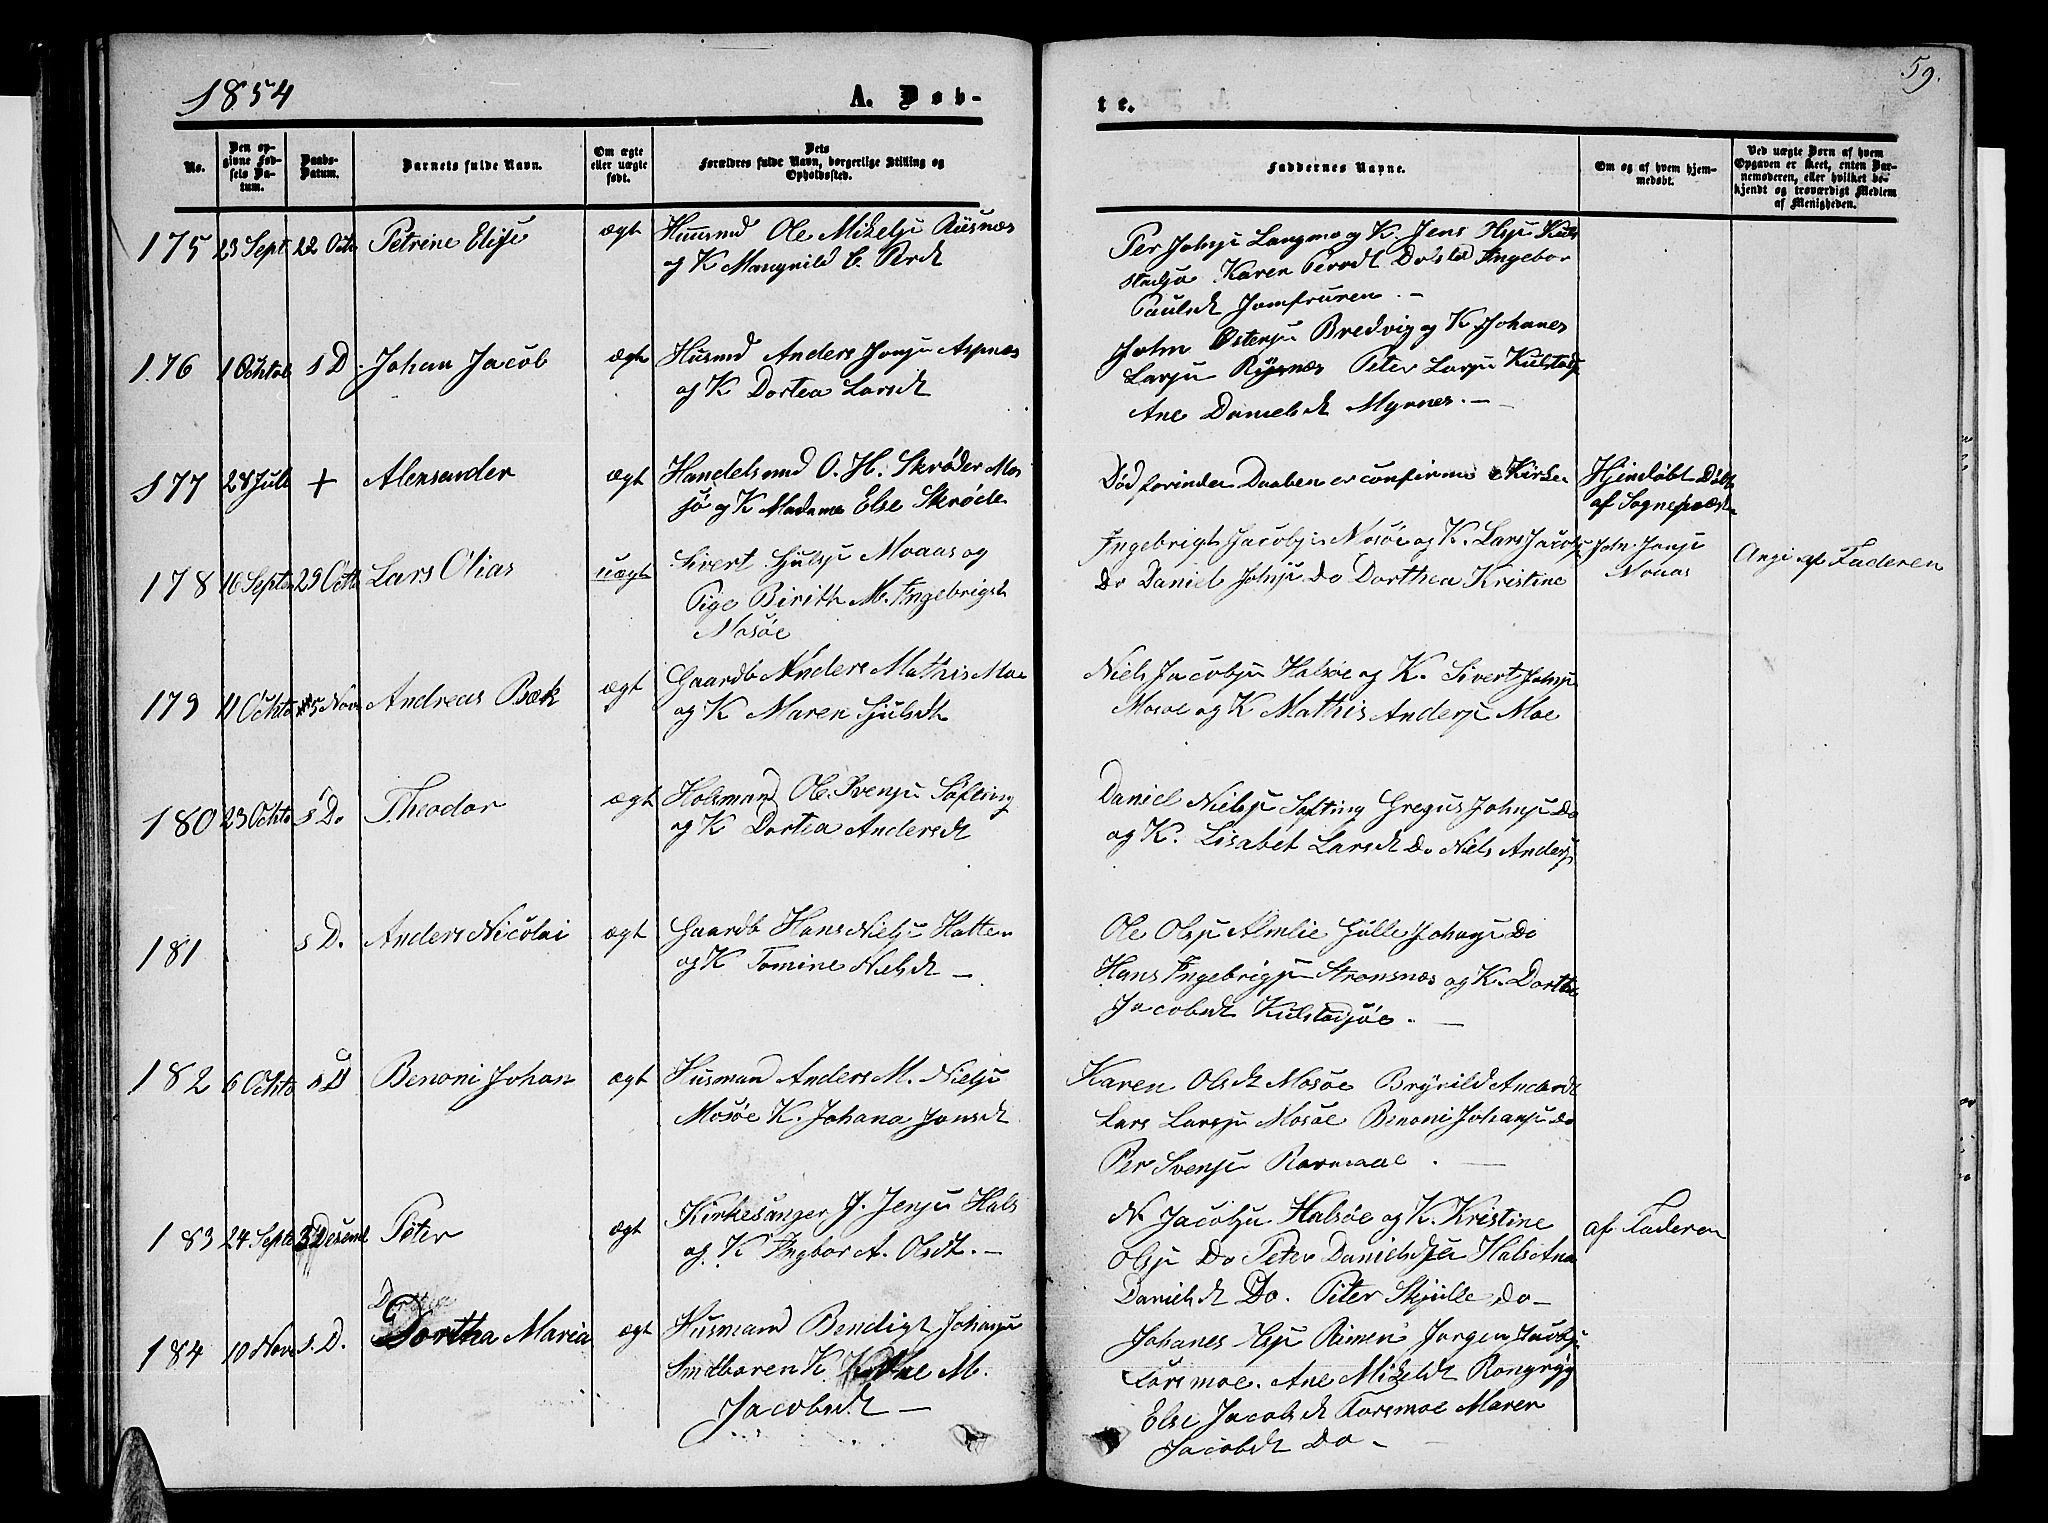 1854
A. Døb-
te.
59.
No.
Den op-
givne Fød-
sels Da-
tum.
Daabs-
Datum.
Barnets fulde Navn.
Om ægte
eller uægte
født.
Dets
Forældres fulde Navn, borgerlige Stilling og
Opholdssted.
Faddernes Navne.
Om og af hvem hjem-
medøbt.
Ved uægte Børn af hvem
Opgaven er skeet, enten Bar-
nemoderen, eller hvilket be-
kjendt og troværdigt Medlem
af Menigheden.
175 23 Sept 22 Octo Petrine Elise ægt Huusmd Ole Mikelsn Riisnæs
og K
Per Johsn Langmo og K Jens Olsn Kuls
stadsjø Karen Dosted Ingebor
Paulsdt Jomfruren. -
176 1 Ochtob s D. Johan Jacob ægt Husmd Anders Jonsn Aspnæs
og K Dortea Larsdt
John Ostensn Bredvig og K Johanes
Larsn Rysnæs Peter Larsn Kulstadsj
Ane Danielsdt Myrnes. -
177 28 Juli + Alexander ægt Handelsmd O. H. Skrøder Mos
jø og K Madame Else Skrøde
Død forinden Daaben er confirme i Kirken
Hjemdøbt Døbt
af Sognepræst
178 16 Septe 29 Octo Lars Olias uægt Sivert Hjulsn Moaas og
Pige Birith M. Ingebrigst
Mosøe
Ingebrigt Jacobsn Mosøe og K. Lars Jacobs
Do Daniel Johsn Do Dorthea Kristine
John Jonsn
Moaas
Angi af Faderen
179 11 Ochto 5 Nov Andreas Bæk ægt Gaardb Anders Mathis Moe
og K Maren Hjulsdt
Niels Jacobsn Halsøe og K. Sivert Johsn
Mosøe og K Mathis Andersn Moe
180 23 Ochto s Do Theodor ægt Holsmand Ole Svensn Søfting
og K Dortea Andersdt
Daniel Nielsn Søfting Gregus Johnsn Do
og K. Lisabet Larsdt Do Niels Anders
181 s D. Anders Nicolai ægt Gaardb Hans Nielsn Hatten
og K Tomine Nielsdt -
Ole Olsn Almlie Gulle Johansn Do
Hans Ingebrigsn Strømsnæs og K. Dorthe
Jacobsdt Kulstadsjøe. -
182 6 Ochto s D Benoni Johan ægt Husmand Anders M. Nielsn
Mosøe K. Johana Jonsdt
Karen Olsdt Mosøe Brynild Andersdt
Lars Larsn Mosøe Benoni Johansn Do
Per Svensn Ravnaae. -
183 24 Septe Desemb Peter ægt Kirkesanger J. Jensn Hals
og K Ingbor A. Olsdt. -
N Jacobsn Halsøe og K. Kristine
Olsn Do Peter Hals Ane
Danielsdt Do. Peter Skjulle do -
af Faderen
184 10 Nov s. D. Dorthea
Dortha Maria ægt Husmand Bendigt Johansn
K Ane M.
Jacobsdt -
Johanes Olsn Remen Jørgen Jacobs
Forsmoe. Ane Mikeldt
Else Jacobsdt Forsmoe Maren
Jacobsdt Do -